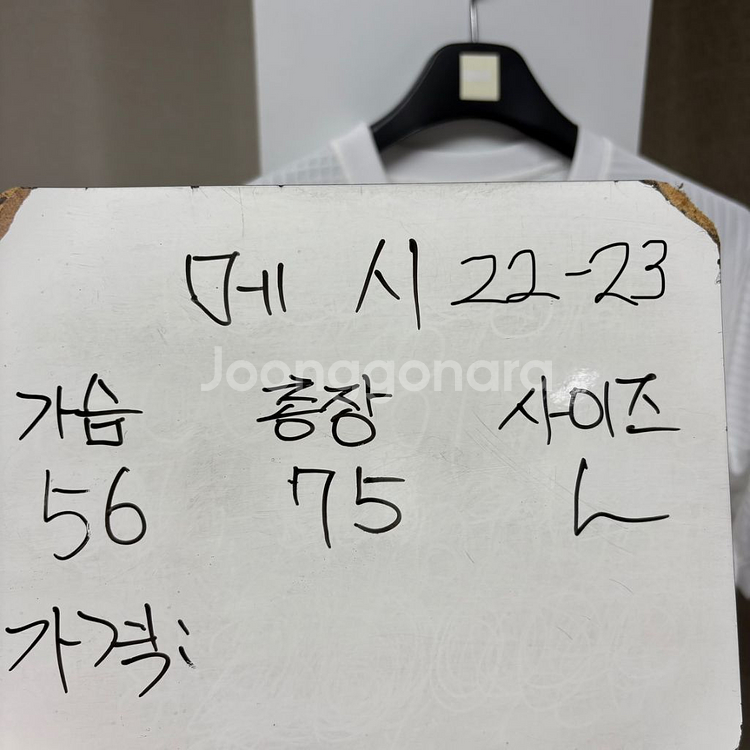 메시 22-23
Joonggonara
가슴 총장 사이즈
56 75 L
가격: